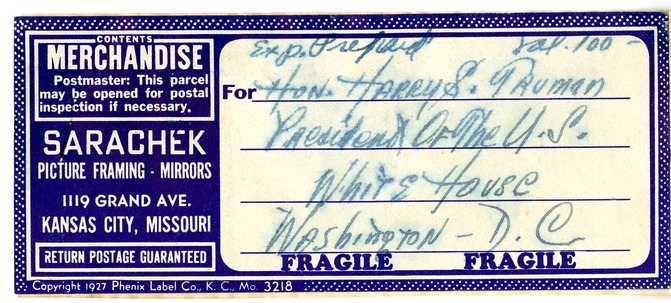 CONTENTS
MERCHANDISE
Postmaster: This parcel
may be opened for postal
inspection if necessary.
SARACHEK
PICTURE FRAMING - MIRRORS
1119 GRAND AVE.
KANSAS CITY, MISSOURI
RETURN POSTAGE GUARANTEED
Copyright 1927 Phenix Label Co., K. C., Mo. 3218
Exp. Prepaid Val. 100-
For Hon. Harry S. Truman
President Of The U.S.
White House
Washington - D.C.
FRAGILE FRAGILE